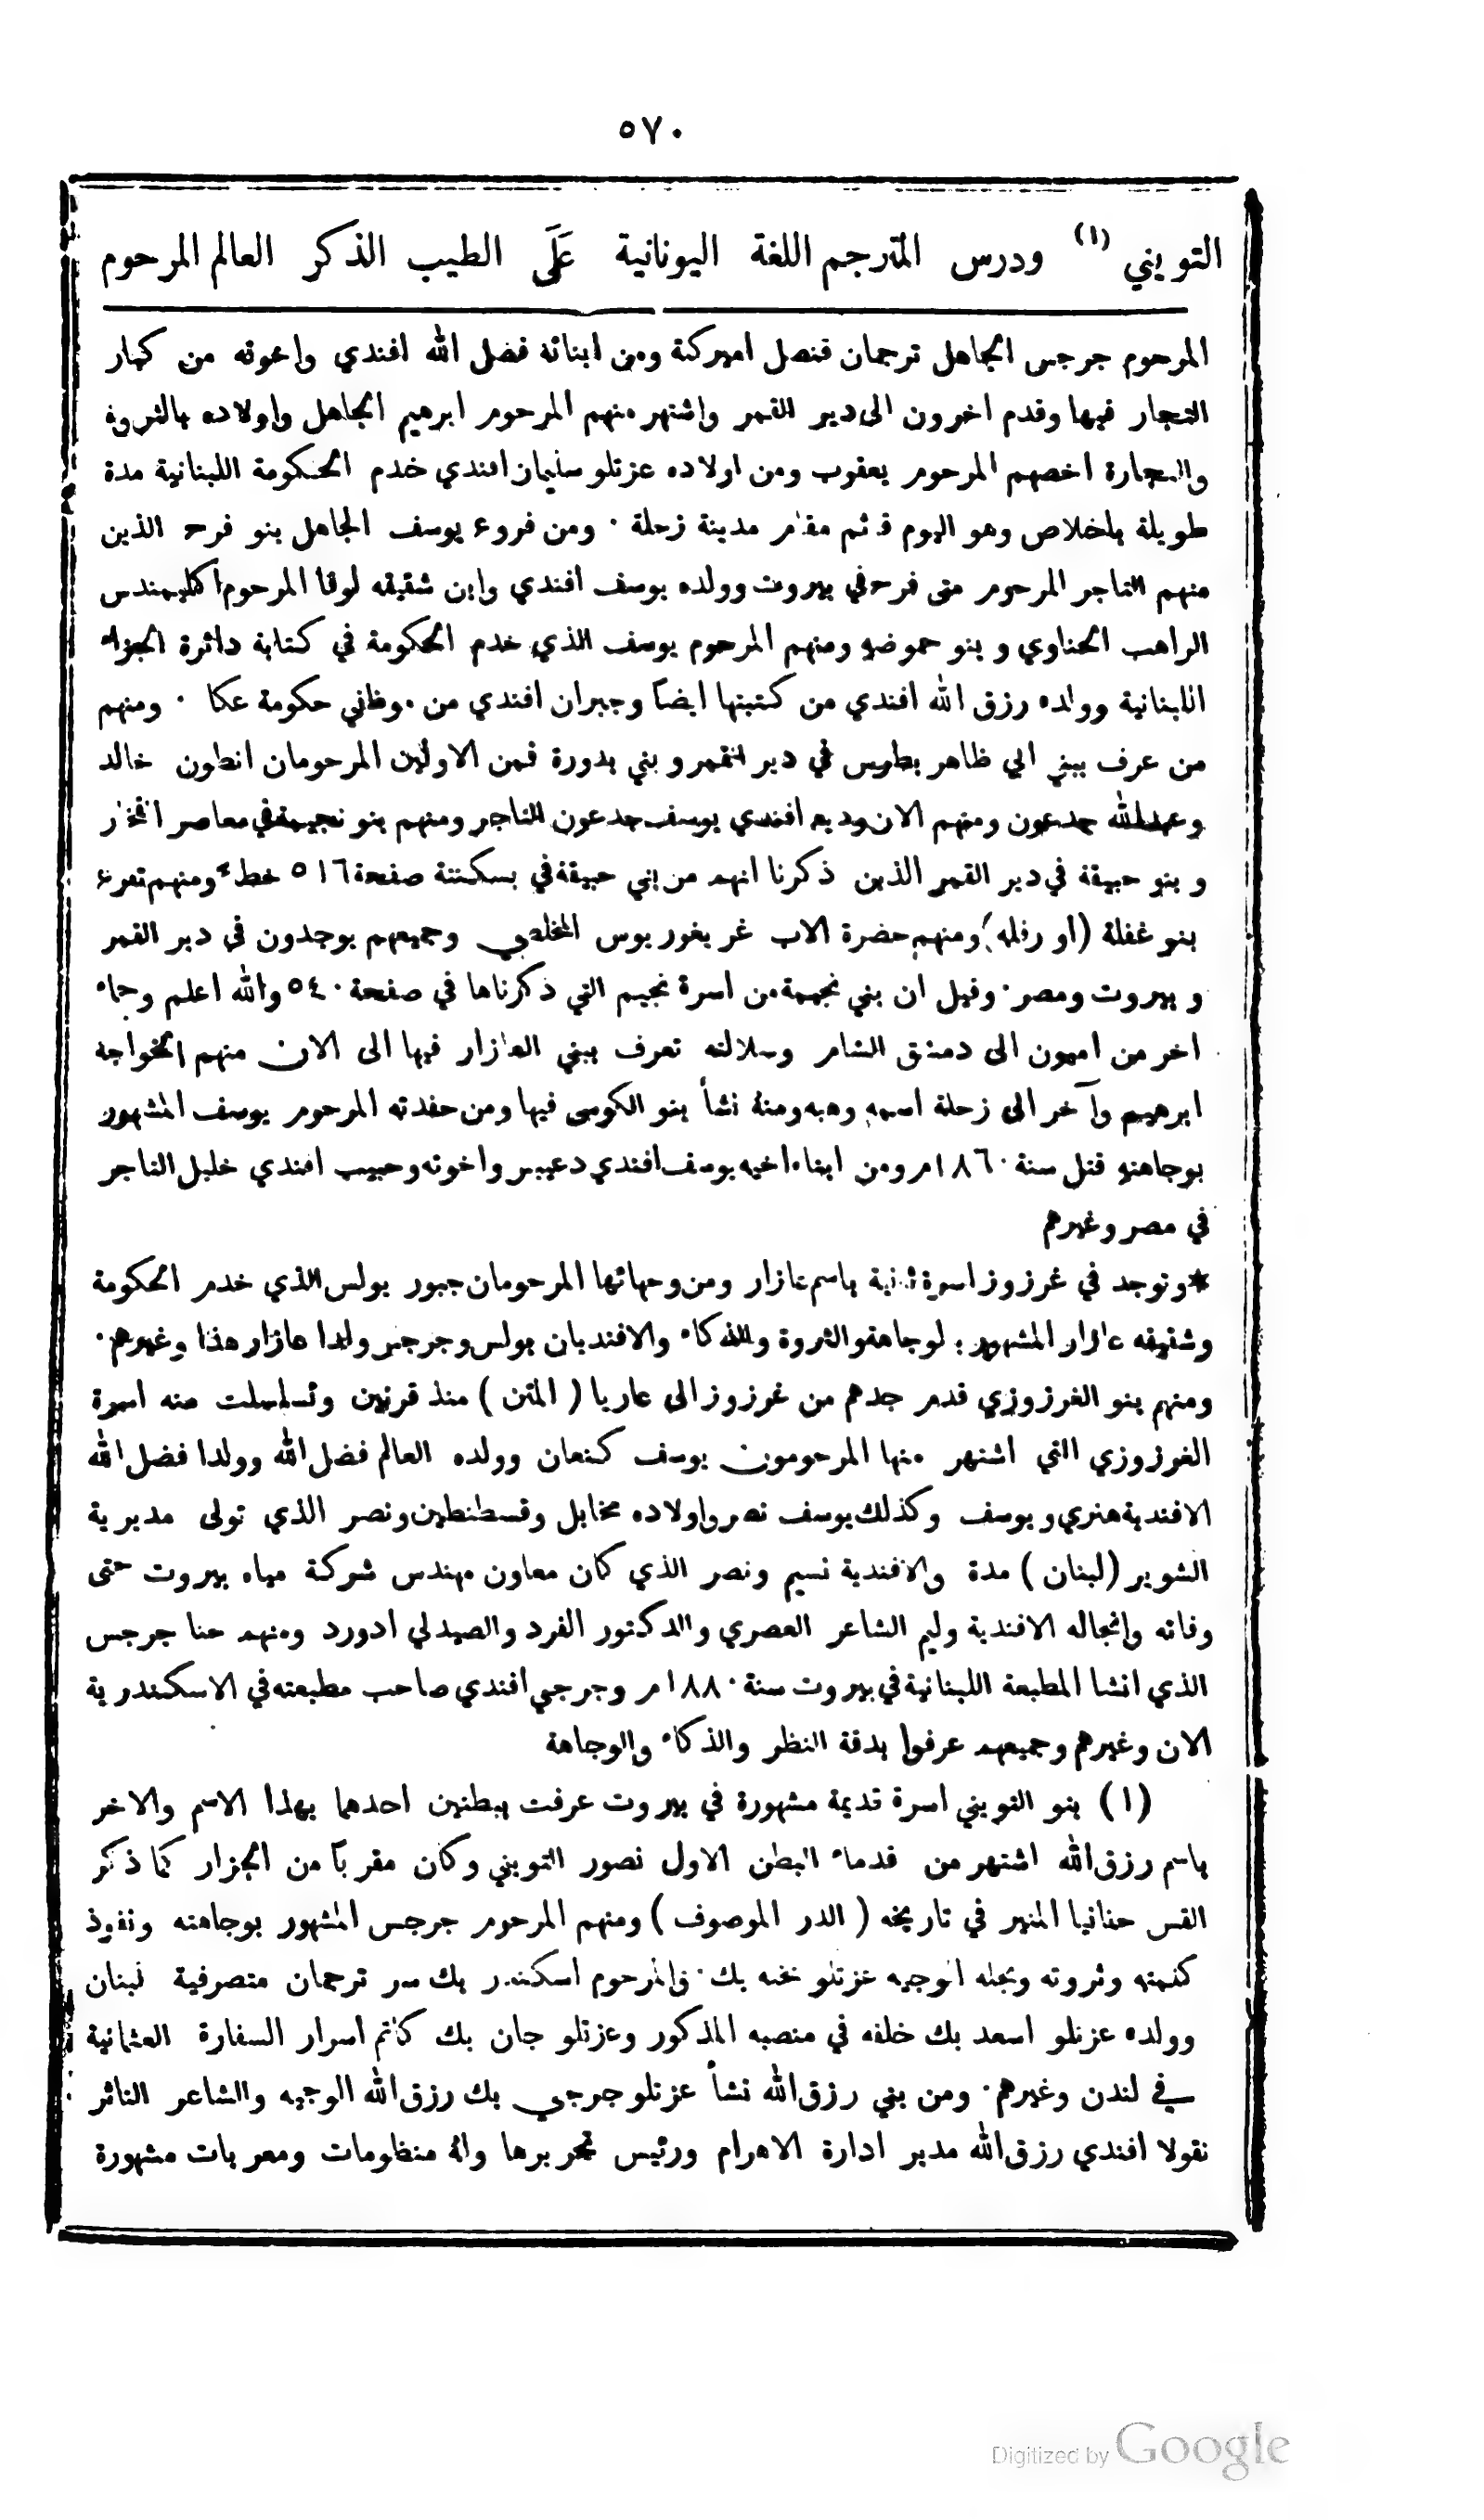 ٥٧٠
التويني (١) ودرس المترجم اللغة اليونانية عَلَى الطيب الذكر العالم المرحوم
المرحوم جرجس الجاهل ترجمان قنصل اميركة ومن ابنائه فضل الله افندي واخوته من كبار
التجار فيها وقدم اخرون الى دير القمر واشتهر منهم المرحوم ابرهيم الجاهل واولاده بالثروة
والتجارة اخصهم المرحوم يعقوب ومن اولاده عزتلو سليمان افندي خدم الحكومة اللبنانية مدة
طويلة باخلاص وهو اليوم قائم مقام مدينة زحلة ٠ ومن فروع يوسف الجاهل بنو فرح الذين
منهم التاجر المرحوم متى فرح في بيروت وولده يوسف افندي وابن شقيقه لوقا المرحوم اكليمندس
الراهب الحناوي وبنو حموضه ومنهم المرحوم يوسف الذي خدم الحكومة في كتابة دائرة الجزاء
اللبنانية وولده رزق الله افندي من كتبتها ايضاً وجبران افندي من موظفي حكومة عكا ٠ ومنهم
من عرف ببني ابي ظاهر بطرس في دير القمر وبني بدورة فمن الاولين المرحومان انطون خالد
وعبدالله جدعون ومنهم الان وديع افندي يوسف جدعون التاجر ومنهم بنو نجيمة في معاصر الفخار
وبنو حبيقة في دير القمر الذين ذكرنا انهم من بني حبيقة في بسكنتة صفحة ٥١٦ خطاء ومنهم تفرع
بنو غفلة (او رفله) ومنهم حضرة الاب غريغوريوس المخلصي وجميعهم يوجدون في دير القمر
وبيروت ومصر ٠ وقيل ان بني نجيمة من اسرة نجيم التي ذكرناها في صفحة ٥٤٠ والله اعلم وجاء
اخر من اميون الى دمشق الشام وسلالته تعرف ببني العازار فيها الى الان منهم الخواجه
ابرهيم وآخر الى زحلة اسمه وهبه ومنه نشأ بنو الكوسى فيها ومن حفدته المرحوم يوسف المشهور
بوجاهته قتل سنة ١٨٦٠م ومن ابناء اخيه يوسف افندي دعيبس واخوته وحبيب افندي خليل التاجر
في مصر وغيرهم
*وتوجد في غرزوز اسرة ثانية باسم عازار ومن وجهائها المرحومان جبور بولس الذي خدم الحكومة
وشقيقه عازار المشهور بالوجاهة والثروة والذكاء والافنديان بولس وجرجس ولدا عازار هذا وغيرهم٠
ومنهم بنو الغرزوزي قدم جدهم من غرزوز الى عاريا ( المتن ) منذ قرنين وتسلسلت منه اسرة
الغرزوزي التي اشتهر منها المرحومون يوسف كنعان وولده العالم فضل الله وولدا فضل الله
الافندية هنري ويوسف وكذلك يوسف نصر واولاده مخايل وقسطنطين ونصر الذي تولى مديرية
الشوير (لبنان) مدة والافندية نسيم ونصر الذي كان معاون مهندس شركة مياه بيروت حتى
وفاته وانجاله الافندية وليم الشاعر العصري والدكتور الفرد والصيدلي ادورد ومنهم حنا جرجس
الذي انشا المطبعة اللبنانية في بيروت سنة ١٨٨٠م وجرجي افندي صاحب مطبعته في الاسكندرية
الان وغيرهم وجميعهم عرفوا بدقة النظر والذكاء والوجاهة
(١) بنو التويني اسرة قديمة مشهورة في بيروت عرفت ببطنين احدهما بهذا الاسم والاخر
باسم رزق الله اشتهر من قدماء البطن الاول نصور التويني وكان مقرباً من الجزار كما ذكر
القس حنانيا المنير في تاريخه ( الدر الموصوف ) ومنهم المرحوم جرجس المشهور بوجاهته ونفوذ
كلمته وثروته ونجله الوجيه عزتلو نخله بك ٠ والمرحوم اسكندر بك سر ترجمان متصرفية لبنان
وولده عزتلو اسعد بك خلفه في منصبه المذكور وعزتلو جان بك كاتم اسرار السفارة العثمانية
في لندن وغيرهم ٠ ومن بني رزق الله نشأ عزتلو جرجي بك رزق الله الوجيه والشاعر الناثر
نقولا افندي رزق الله مدير ادارة الاهرام ورئيس تحريرها وله منظومات ومعربات مشهورة
Digitized by Google